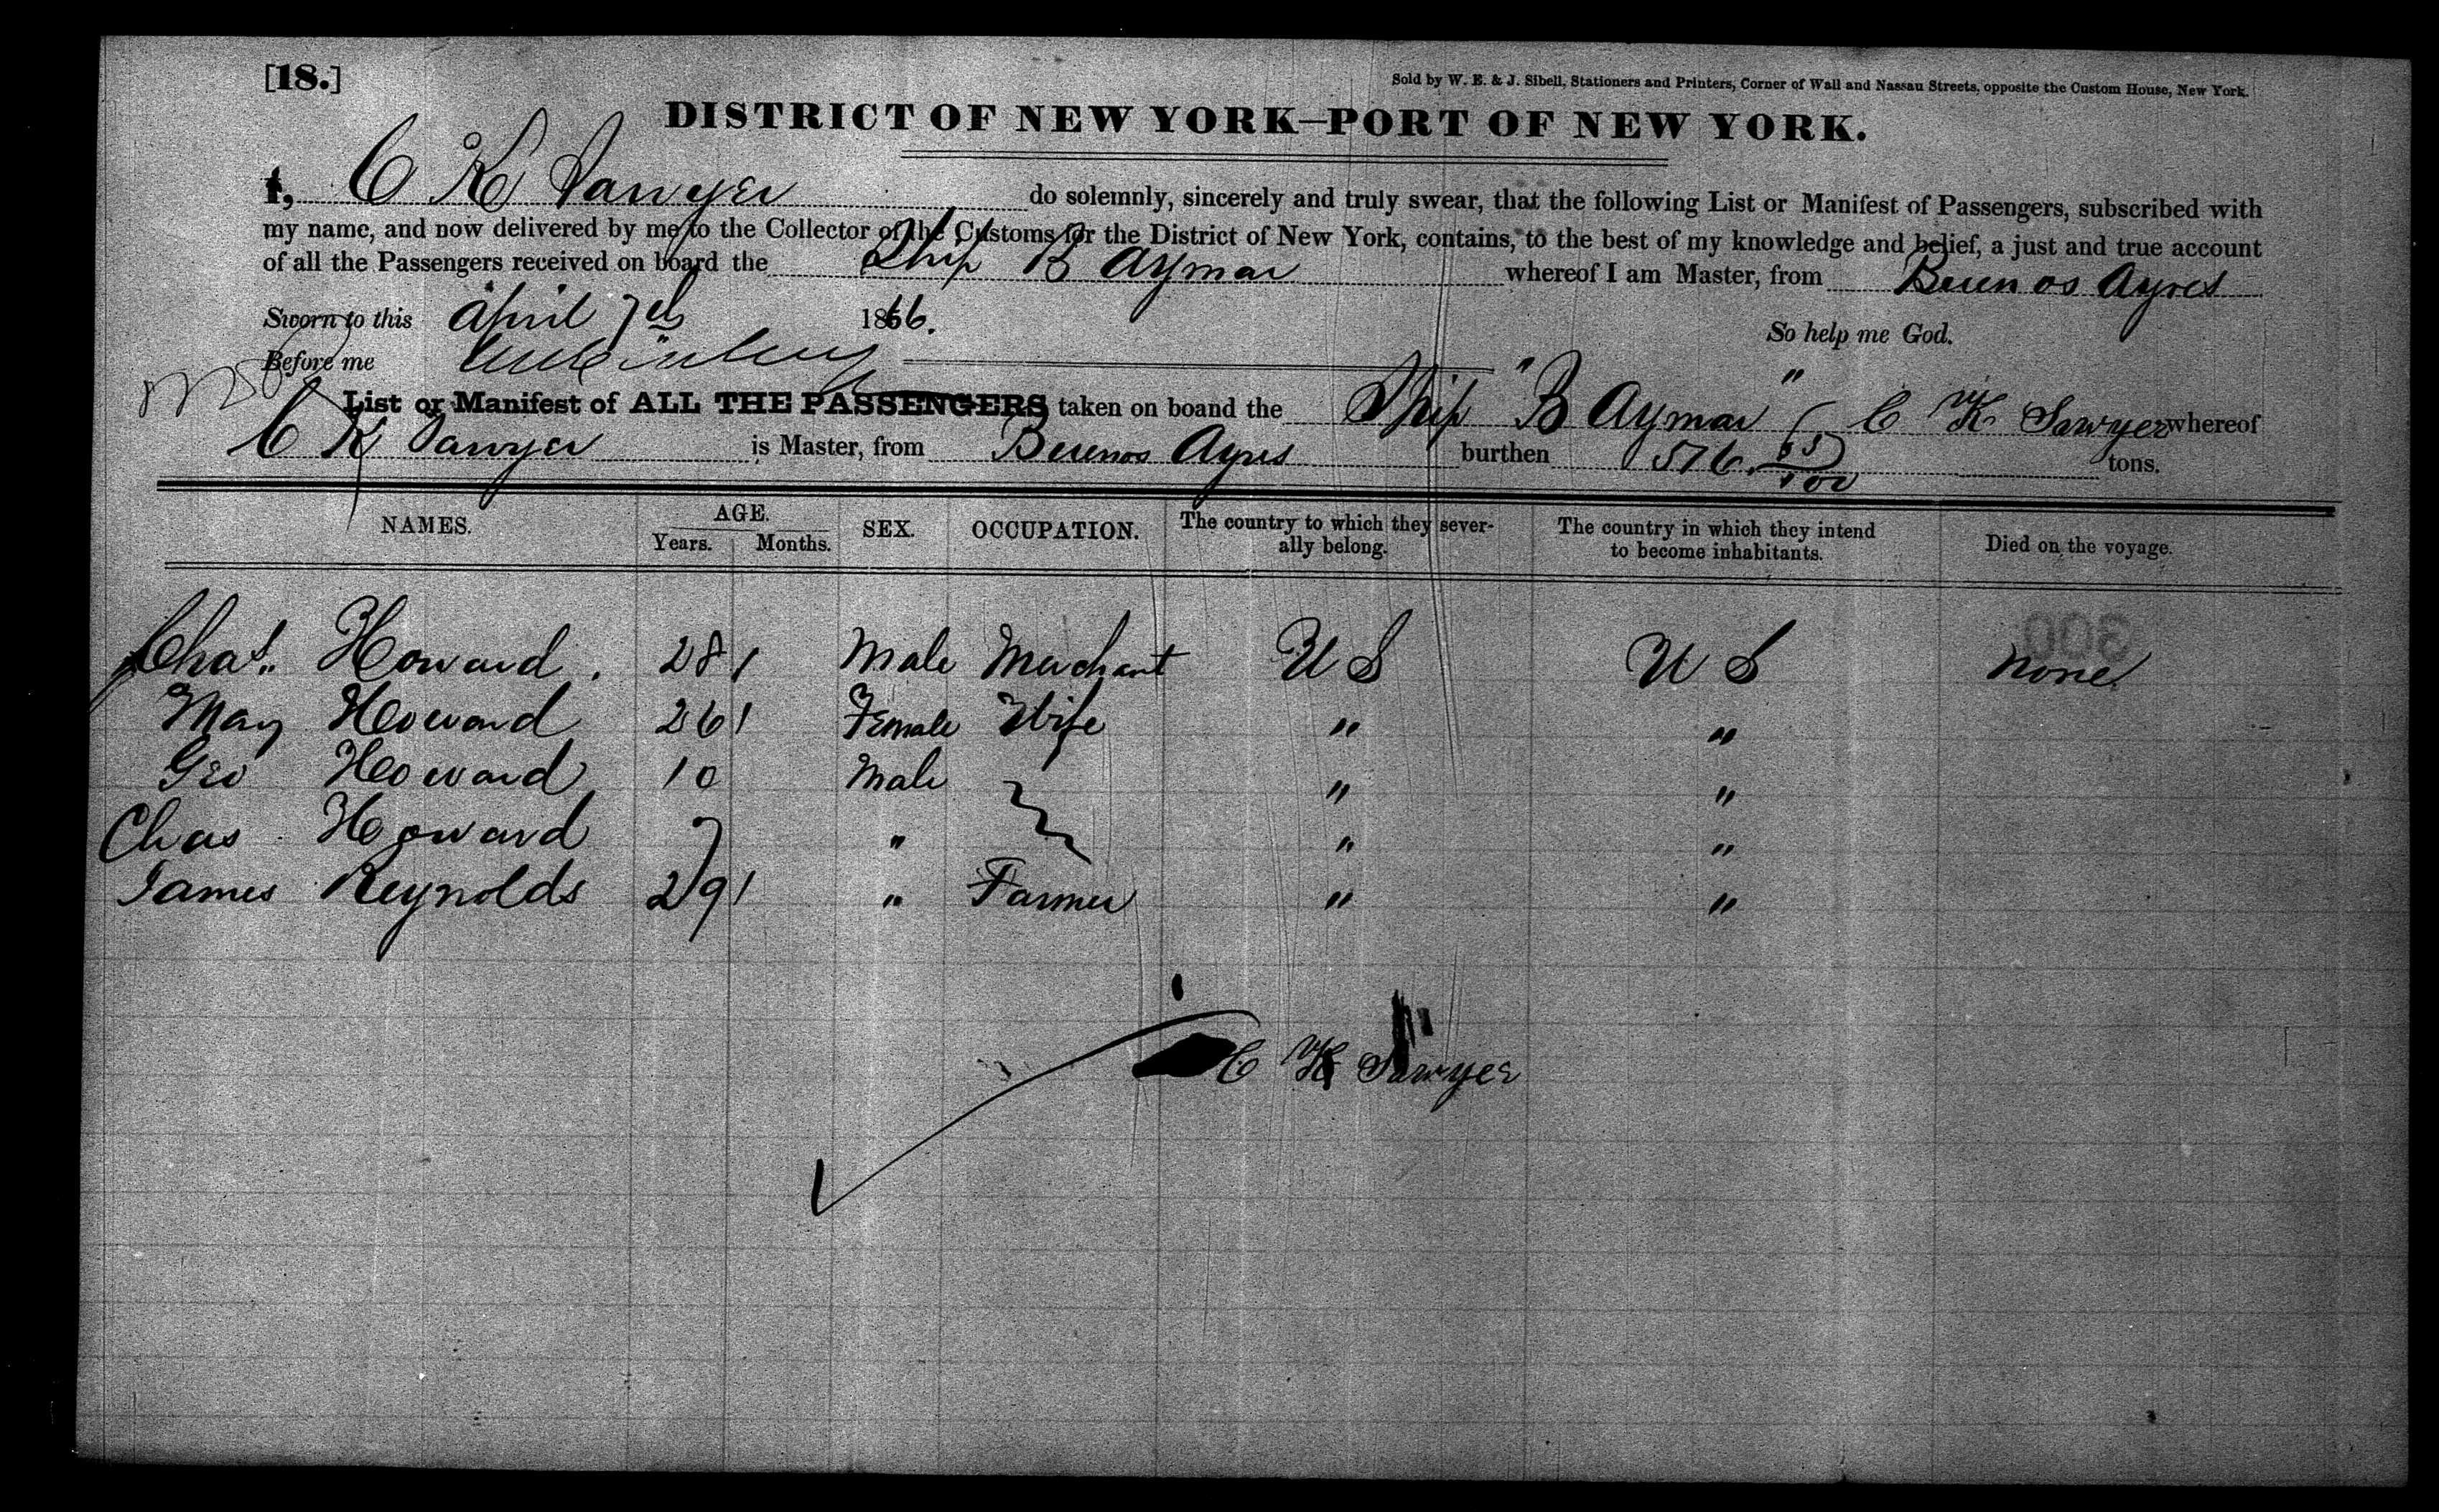 [18.]
Sold by W. E. & J. Sibell, Stationers and Printers, Corner of Wall and Nassau Streets, opposite the Custom House, New York.
DISTRICT OF NEW YORK—PORT OF NEW YORK.
I, C K Sawyer do solemnly, sincerely and truly swear, that the following List or Manifest of Passengers, subscribed with
my name, and now delivered by me to the Collector of the Customs for the District of New York, contains, to the best of my knowledge and belief, a just and true account
of all the Passengers received on board the Ship B Aymar whereof I am Master, from Buenos Ayres
Sworn to this April 7th 1866. So help me God.
Before me
List or Manifest of ALL THE PASSENGERS taken on boand the Ship "B Aymar" C K Sawyer whereof
C K Sawyer is Master, from Buenos Ayres burthen 576. 65/100 tons.
NAMES. AGE. Years. Months. SEX. OCCUPATION. The country to which they severally belong. The country in which they intend to become inhabitants. Died on the voyage.
300
Chas. Howard. 28 / Male Merchant U S U S None
May Howard 26 / Female Wife " "
Geo Howard 10 Male " "
Chas Howard 7 " " "
James Reynolds 29 / " Farmer " "
C K Sawyer